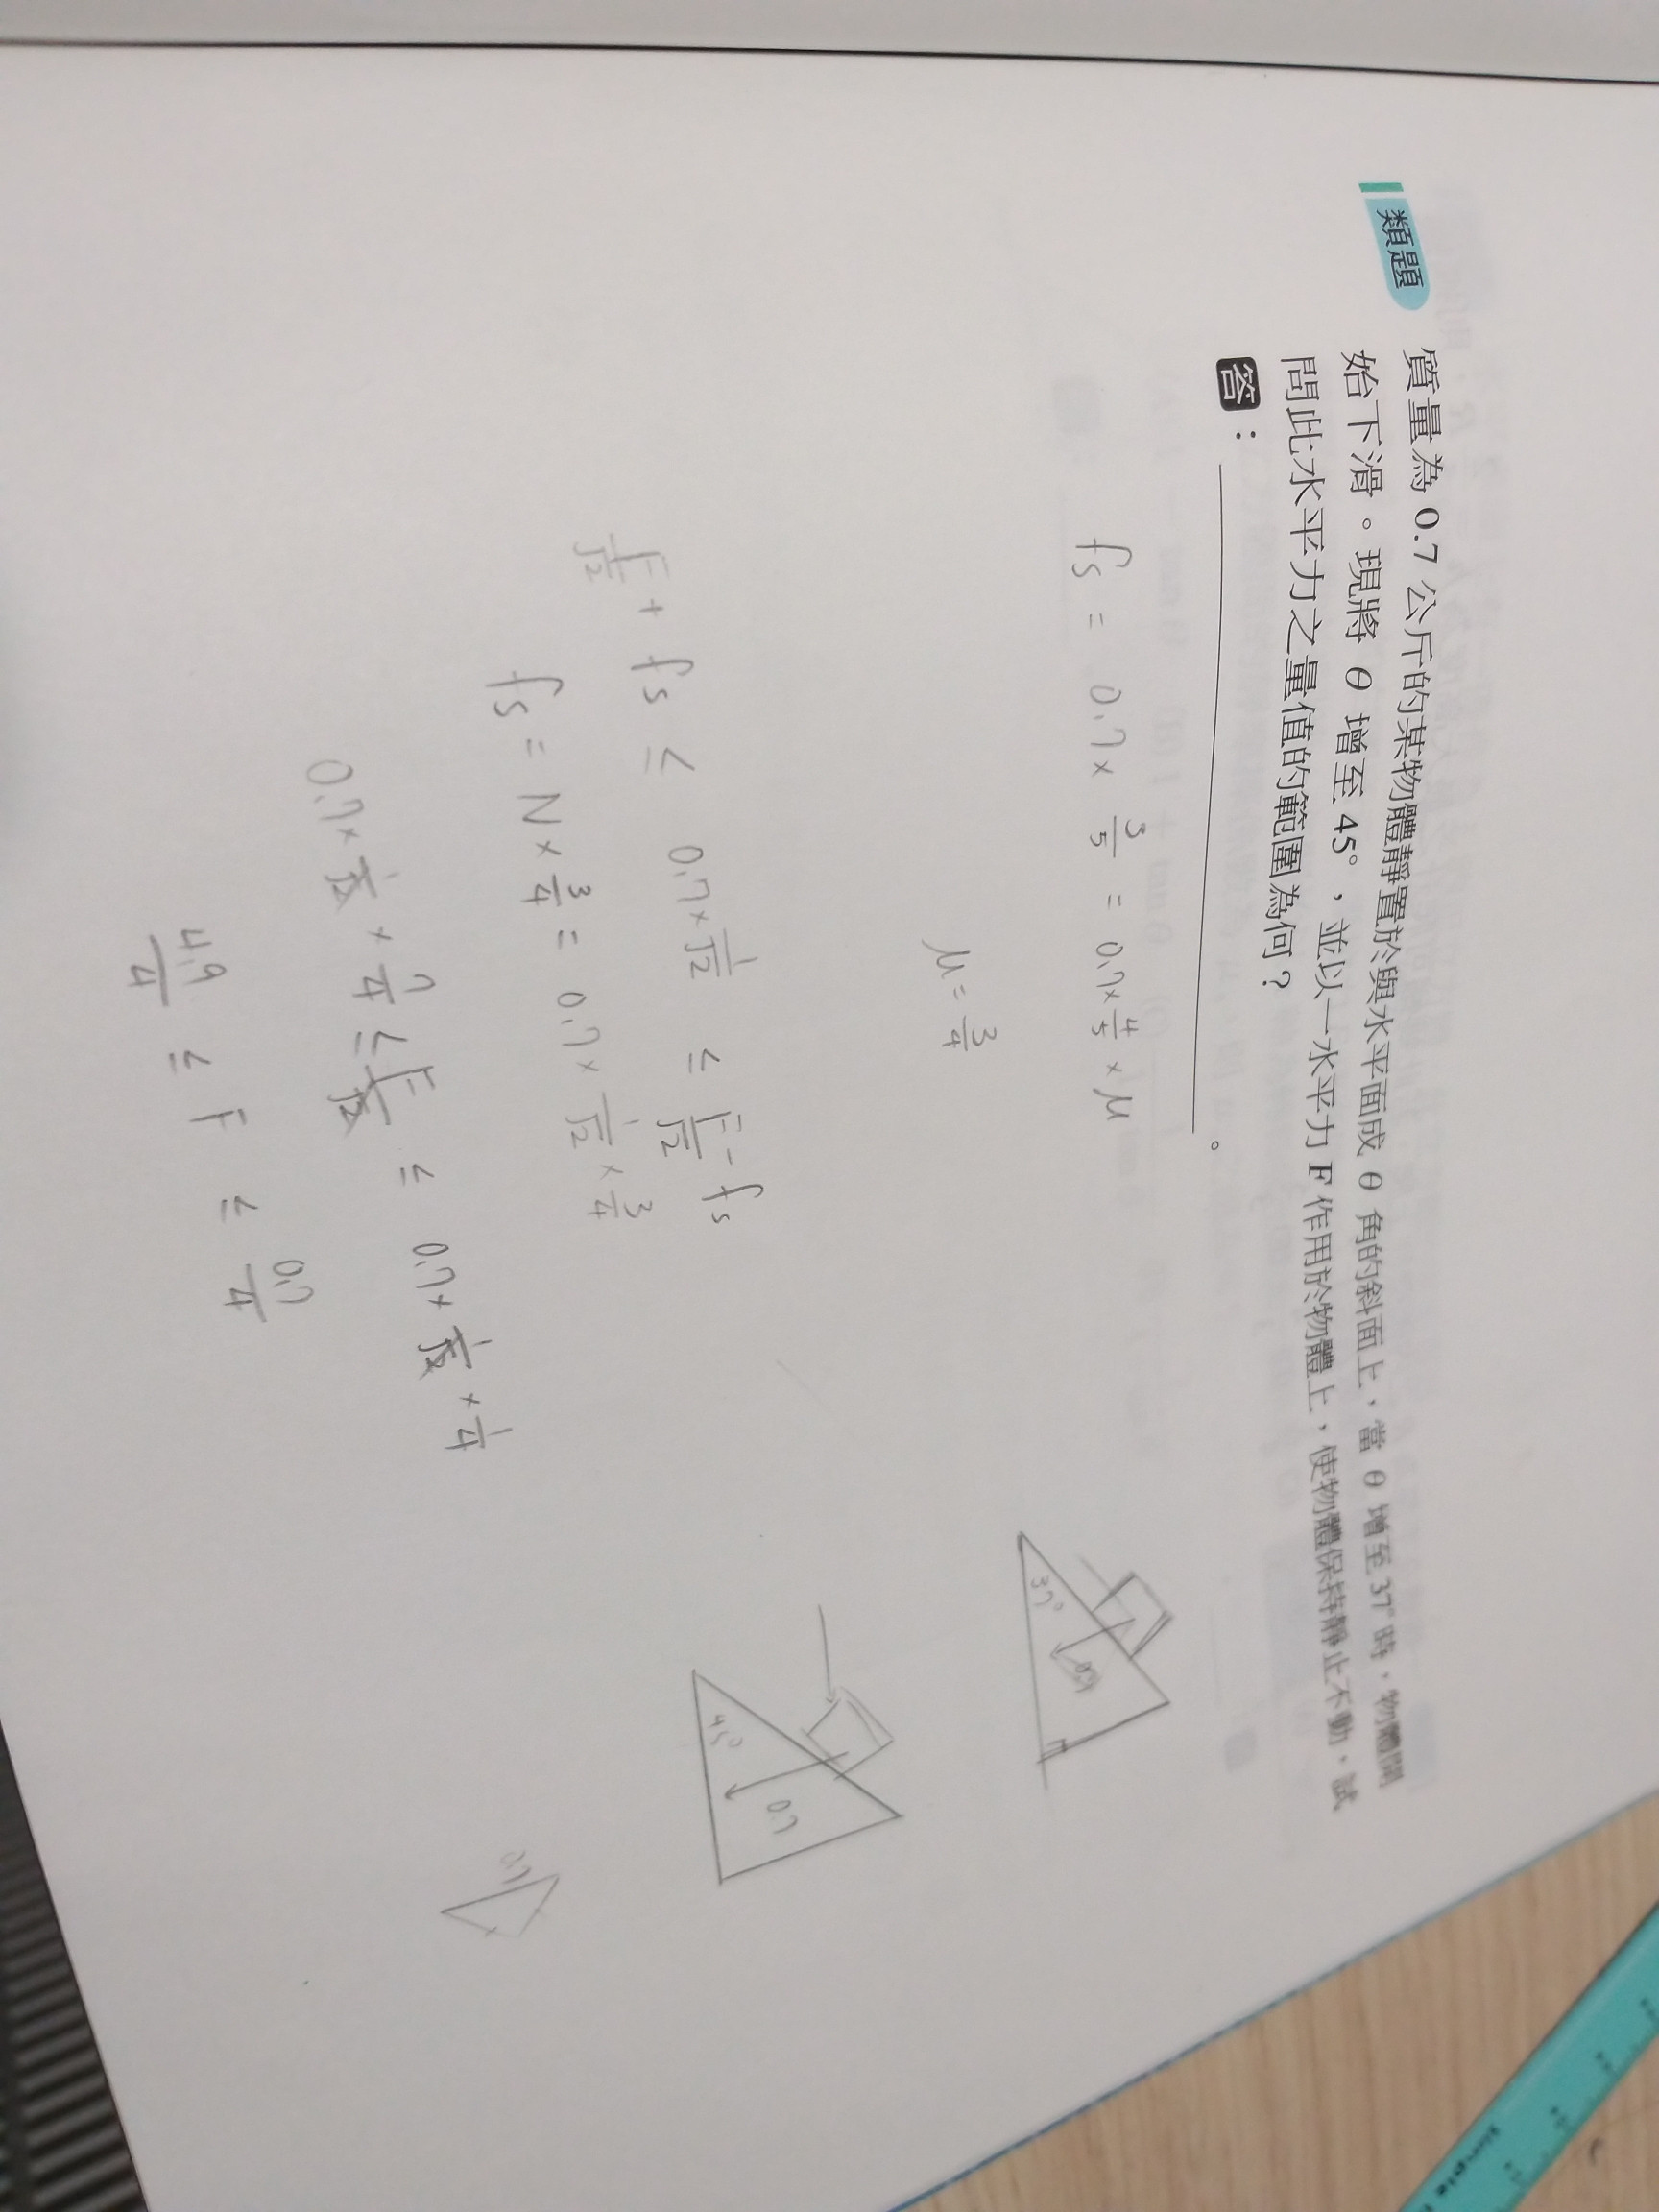 類題
質量為 0.7 公斤的某物體靜置於與水平面成 θ 角的斜面上，當 θ 增至 37° 時，物體開
始下滑。現將 θ 增至 45°，並以一水平力 F 作用於物體上，使物體保持靜止不動，試
問此水平力之量值的範圍為何？
答：。
fs = 0.7 × 3/5 = 0.7 × 4/5 × μ
μ = 3/4
37°
F/√2 + fs ≤ 0.7 × 1/√2 ≤ F/√2 - fs
45°
0.7
fs = N × 3/4 = 0.7 × 1/√2 × 3/4
0.7 × 1/√2 × 7/4 ≤ F/√2 ≤ 0.7 × 1/√2 × 1/4
0.7
4.9/4 ≤ F ≤ 0.7/4
simple